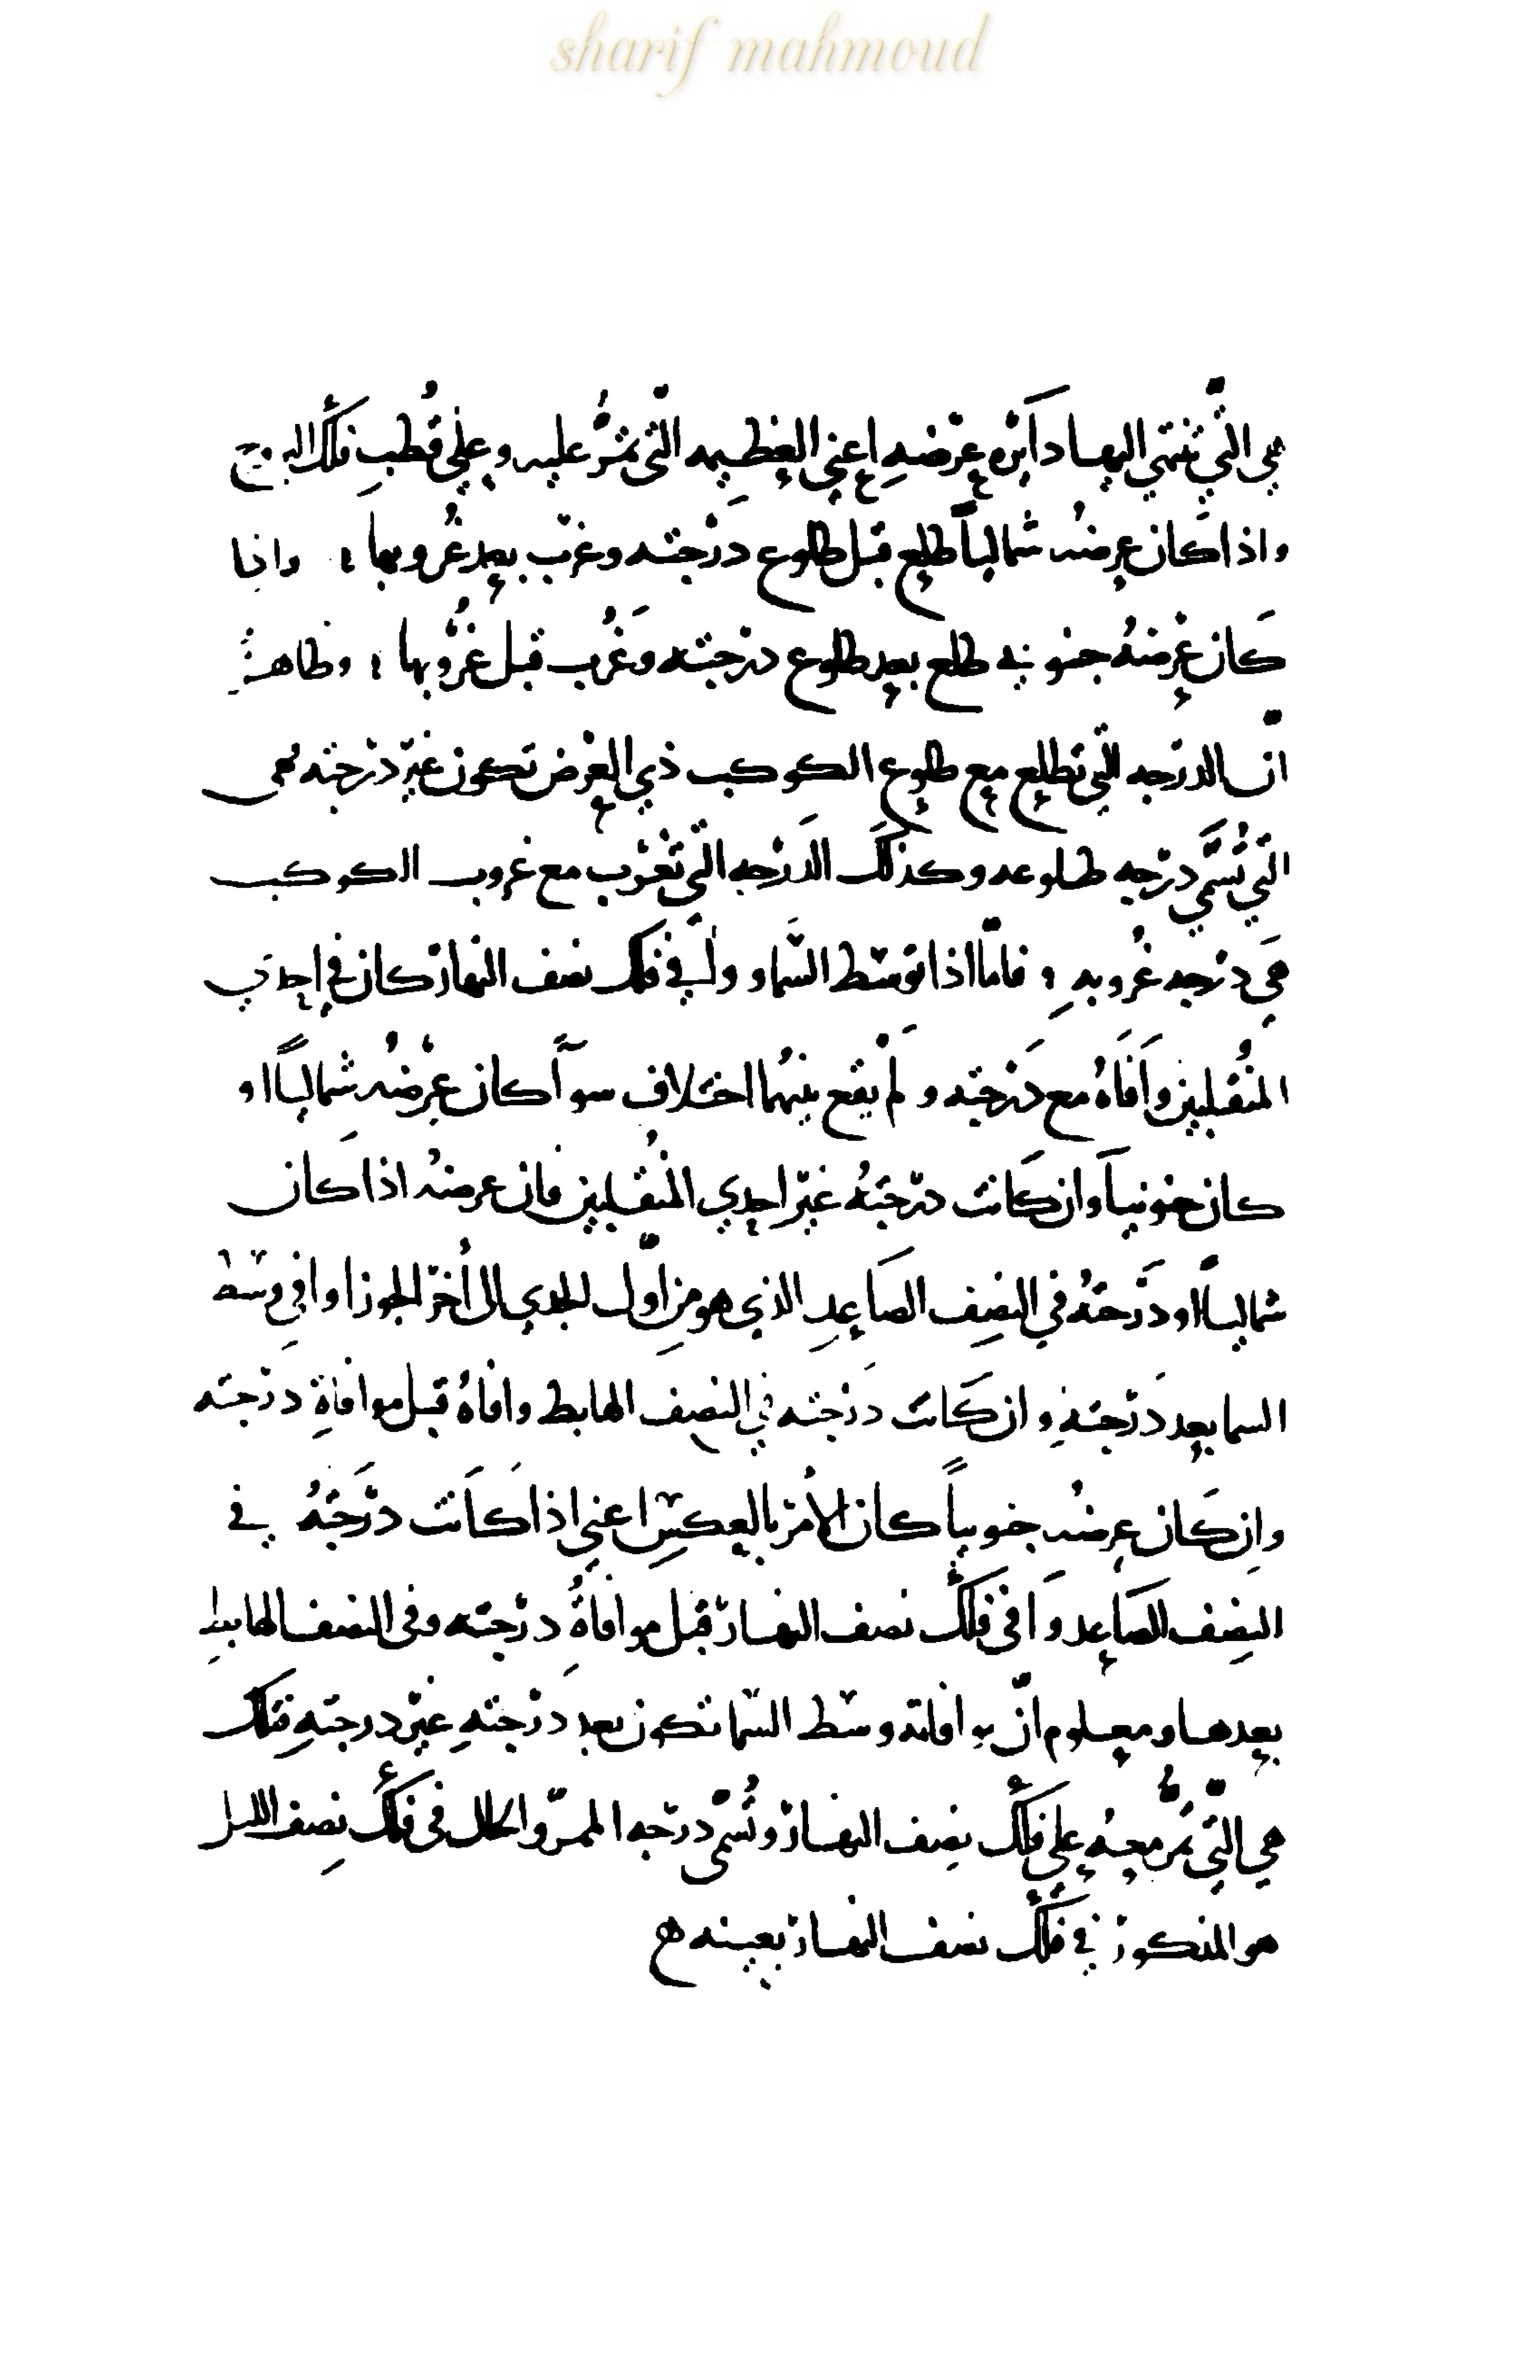 sharif mahmoud
هي التّي تنتهي اليها دائره عرضهِ اعني العظيمه التّي تمُرّ عليه وعلى قُطبِ فلك البروج
واذا كَان عرضُه شمالياً طلع قبل طلوع دَرْجته وغرب بعد غُروبها ؛ واذا
كَان عرضهُ جنوبي طلع بعد طلوع درجته وَغَرُب قبل غُرُوبها ؛ وظاهرٌ
انّ الدرَجه التي تطلع مع طلوع الكوكب ذي العرض تكون غير درجته
التّي تُسَمَّي درجه طلوعه وكذلَك الدَرْجه التّي تَغْرُب مع غروب الكوكب
هيَ درجه غُروبهِ ؛ فامّا اذا توسّط السَّما و في فلك نصف النهار كان في احدَي
المنُقلبين وَافَاهُ مع دَرَجته ولَمْ يقع بينهُما اختلاف سوآً كان عرْضهُ شمالياً او
كان جنوبياً وان كَانت درجتهُ غير احدي المنُقلبين فان عرضهُ اذا كَان
شمالياً ودَرَجتهُ في النصِف الصَاعِدِ الذي هو مِن اوّل الجدي الى اُخر الجوزا وافي وسَط
السما بعد دَرْجتهِ وان كَانت دَرْجته في النصف الهابط وافاهُ قبل موافاةِ دَرْجته
وان كَان عرضُه جنوبياً كان الأمر بالعكسِ اعني اذا كَانت درَجتهُ في
النصِف الصَاعِد وَافي فلَك نصف النهار قبل موافاةُ درجته وفي النصف الهابطِ
بعدها ومعلوم انّ موافاته وسَط السّما تكون بعد دَرْجتهِ غيْر درجتهِ فتلك
هي التّي تمُرّ معهُ على فلَك نصِف النهار وتُسَمَّى درجه الممرّ والحال في فلَك نصِف الليل
هو المذكور في فلَك نصف النهار بعينه